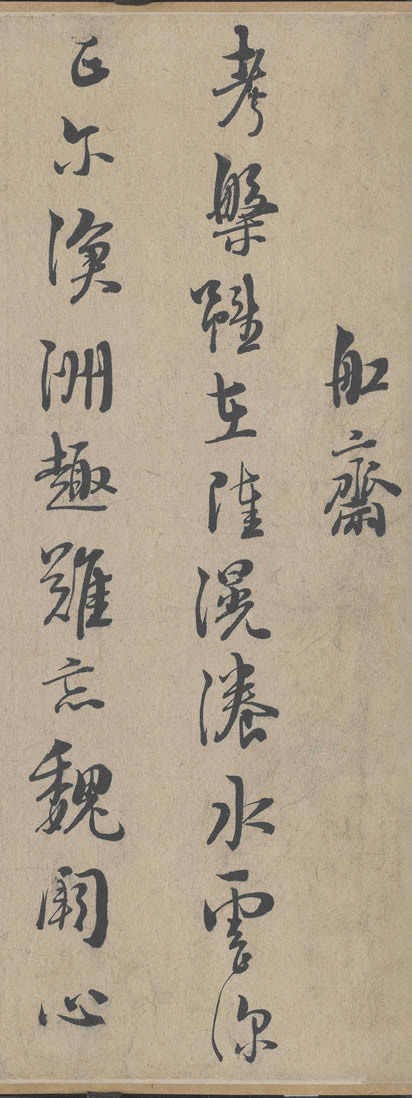 舡齋
考槃雖在陸滉瀁水雲深
正尔滄洲趣難忘魏闕心